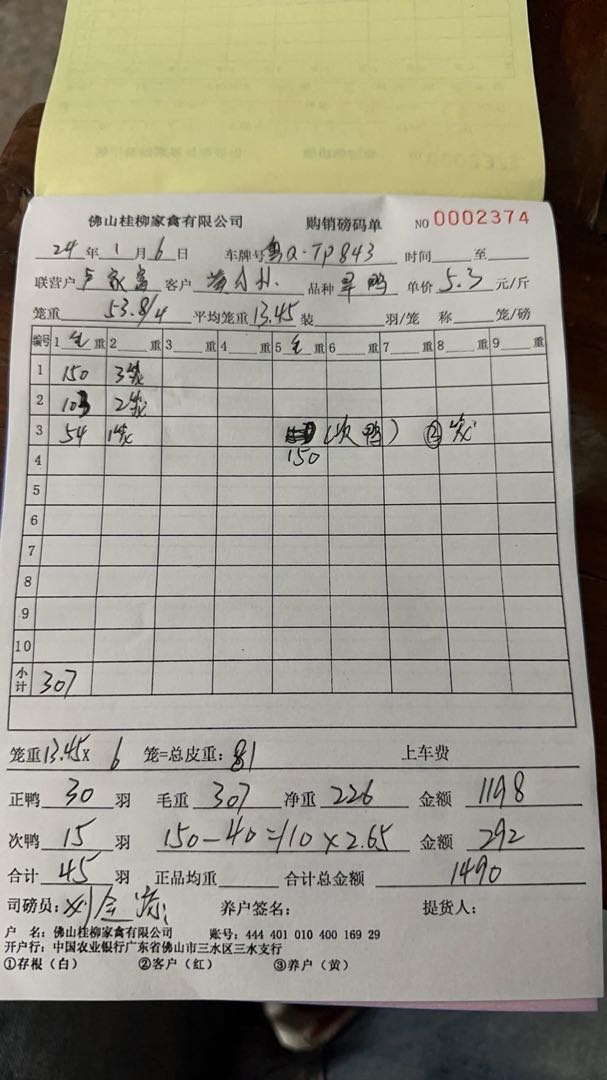 佛山桂柳家禽有限公司 购销磅码单 NO 0002374
24 年 1 月 6 日 车牌号 粤Q·TP843 时间 至
联营户 卢家富 客户 品种 旱鸭 单价 5.3 元/斤
笼重 53.8/4 平均笼重 13.45 装 羽/笼 称 笼/磅
编号 1 毛 重 2 重 3 重 4 重 5 毛 重 6 重 7 重 8 重 9 重
1 150 3笼
2 103 2笼
3 54 1笼 (次鸭) ② 笼
4 150
5
6
7
8
9
10
小计 307
笼重 13.45× 6 笼=总皮重: 81 上车费
正鸭 30 羽 毛重 307 净重 226 金额 1198
次鸭 15 羽 150-40=110×2.65 金额 292
合计 45 羽 正品均重 合计总金额 1490
司磅员: 养户签名: 提货人:
户 名: 佛山桂柳家禽有限公司 账号: 444 401 010 400 169 29
开户行: 中国农业银行广东省佛山市三水区三水支行
①存根（白） ②客户（红） ③养户（黄）